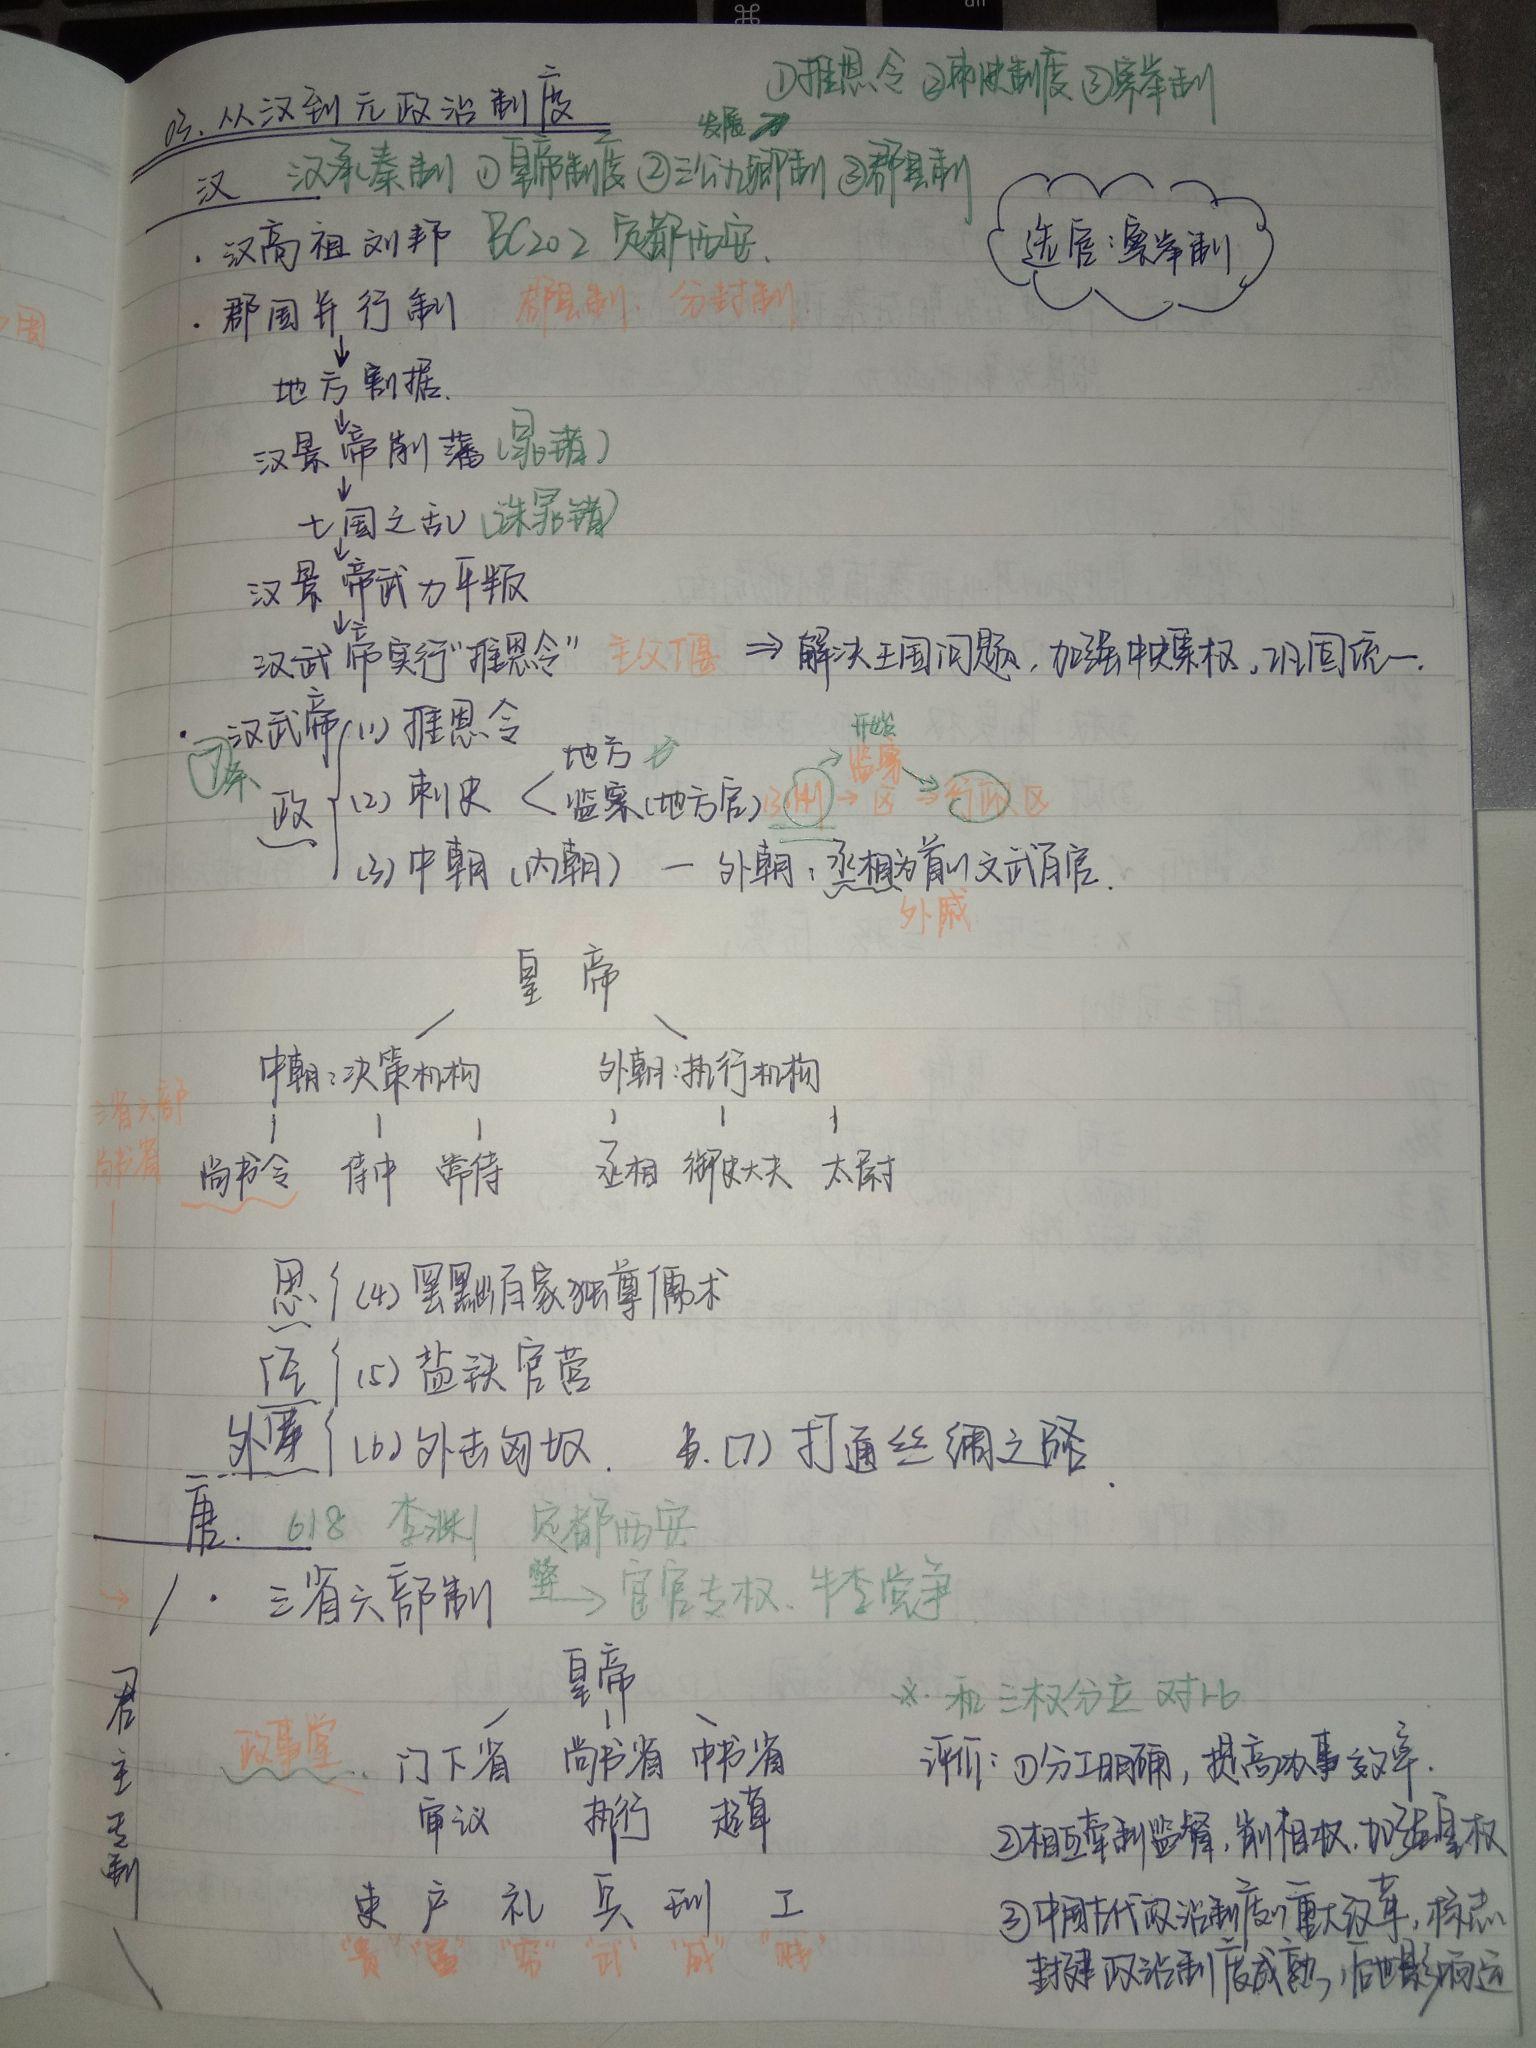 ①推恩令 ②刺史制度 ③察举制
03.从汉到元政治制度
发展
汉 汉承秦制 ①皇帝制度 ②三公九卿制 ③郡县制
选官:察举制
·汉高祖刘邦 BC202 定都西安.
·郡国并行制 郡县制. 分封制.
↓
地方割据.
↓
汉景帝削藩(晁错)
↓
七国之乱(诛晁错)
↓
汉景帝武力平叛
↓
汉武帝实行"推恩令" 主父偃 ⇒ 解决王国问题,加强中央集权,巩固统一.
·汉武帝 (1)推恩令
7条
政 (2)刺史 < 地方
监察(地方官) 13州→监察区→行政区
开始
(3)中朝(内朝) — 外朝:丞相为首的文武百官.
外戚
皇帝
中朝:决策机构 外朝:执行机构
三省六部
尚书省
尚书令 侍中 常侍 丞相 御史大夫 太尉
思 (4)罢黜百家独尊儒术
经 (5)盐铁官营
外军 (6)外击匈奴. (7)打通丝绸之路.
唐. 618 李渊 定都西安
·三省六部制 弊→宦官专权.牛李党争
君主专制
皇帝
※. 和三权分立对比
政事堂 门下省 尚书省 中书省
审议 执行 起草
吏 户 礼 兵 刑 工
"贵" "富" "穷" "武" "威" "贱"
评价:①分工明确,提高办事效率.
②相互牵制监督,削相权.加强皇权
③中国古代政治制度的重大改革,标志
封建政治制度成熟,后世影响远